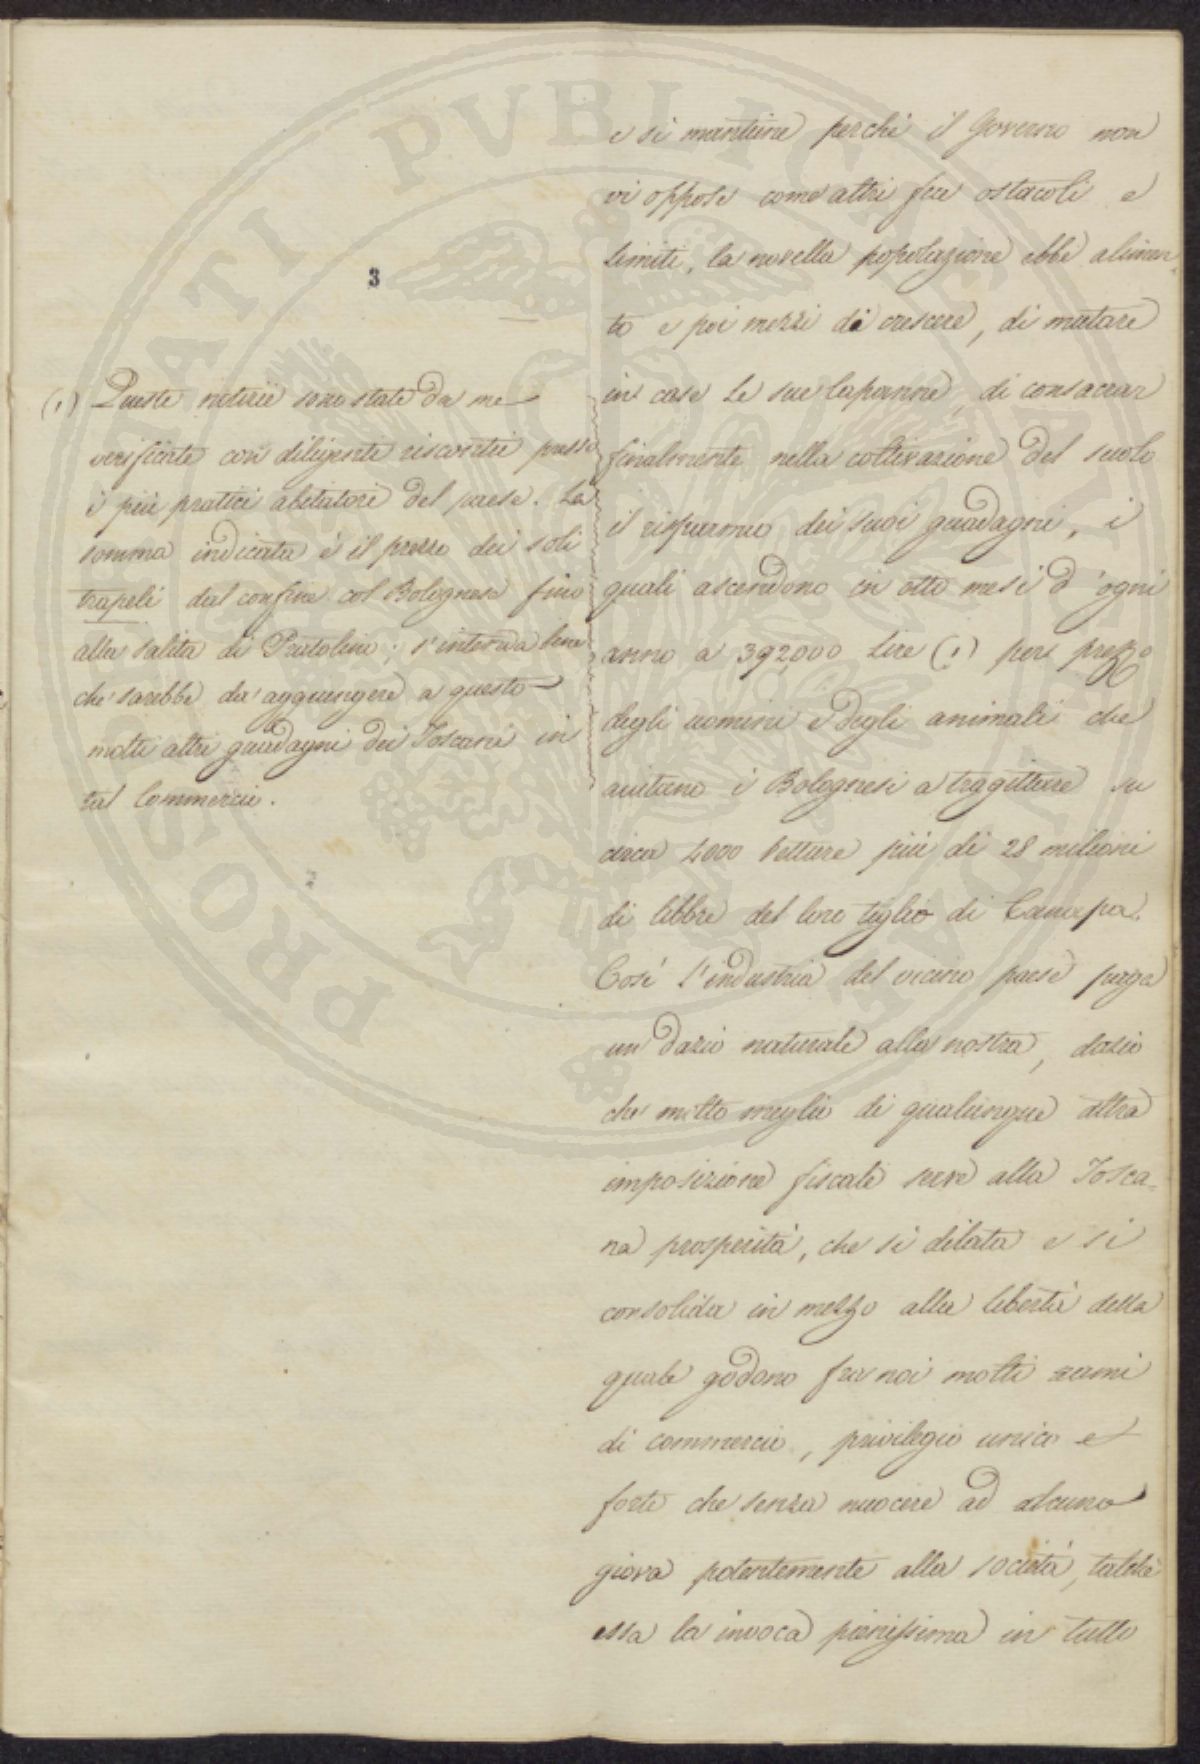 3
(1) Queste notizie sono state da me
verificate con diligente riscontri presso
i più pratici abitatori del paese. La
somma indicata è il prezzo dei soli
trapeli dal confine col Bolognese fino
alla salita di Pratolino; s'intenda bene
che sarebbe da aggiungere a questo
molti altri guadagni dei Toscani in
tal Commercio.
e si mantiene perché il Governo non
vi oppose come altri fece ostacoli e
limiti, la novella popolazione ebbe alimen-
to e poi mezzi di crescere, di mutare
in case le sue capanne, di consacrar
finalmente nella coltivazione del suolo
il risparmio dei suoi guadagni, i
quali ascendono in otto mesi d'ogni
anno a 392,000 Lire (1) per prezzo
degli uomini e degli animali che
aiutano i Bolognesi a tragittare su
circa 4000 Vetture più di 28 milioni
di libbre del loro tiglio di Canepa.
Così l'industria del vicino paese paga
un dazio naturale alla nostra, dazio
che molto meglio di qualunque altra
imposizione fiscale serve alla Tosca-
na prosperità, che si dilata e si
consolida in mezzo alla libertà della
quale godono fra noi molti rami
di commercio, privilegio unico e
forte che senza nuocere ad alcuno
giova potentemente alla società, talché
essa la invoca pienissima in tutto
PROBATI PVBLICA